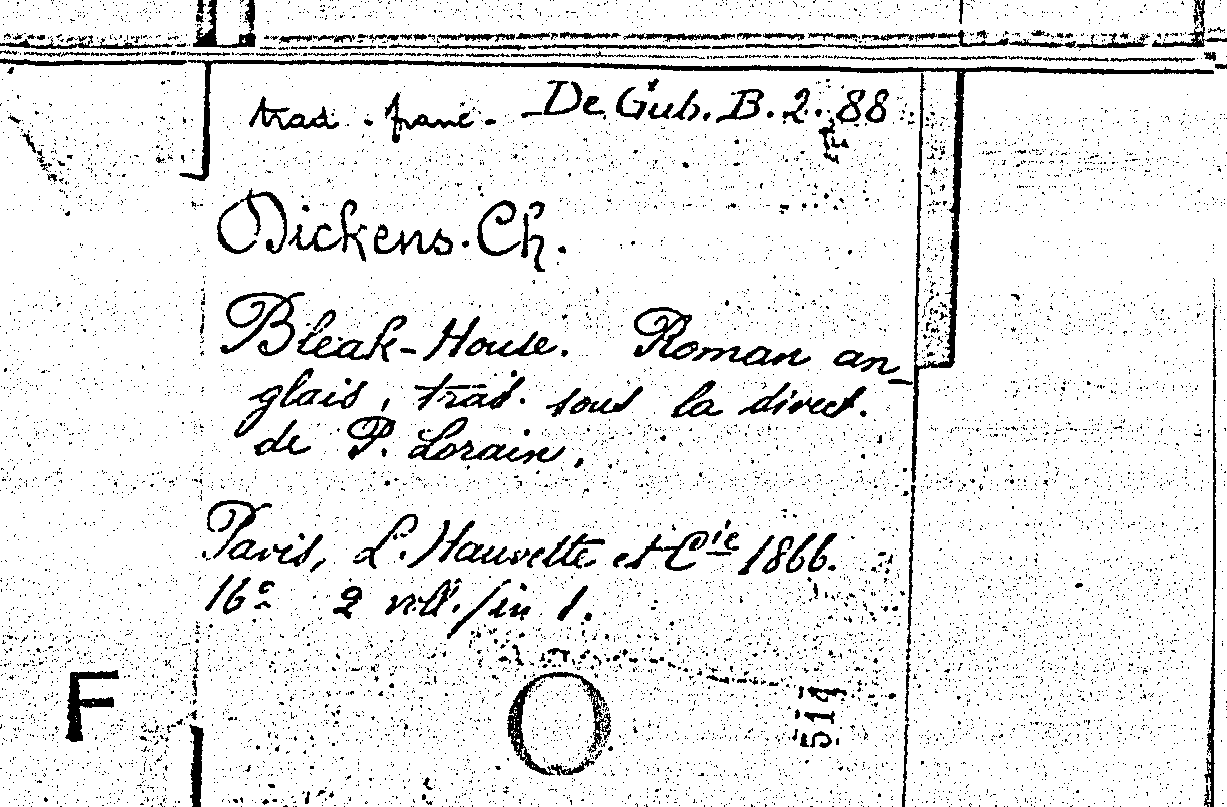 trad. franc. - De Gub. B. 2. 88
Dickens. Ch.
Bleak-House. Roman an-
glais, trad. sous la direct.
de P. Lorain.
Paris, L. Hauvette et Cie 1866.
16° 2 voll. / in 1.
F
514